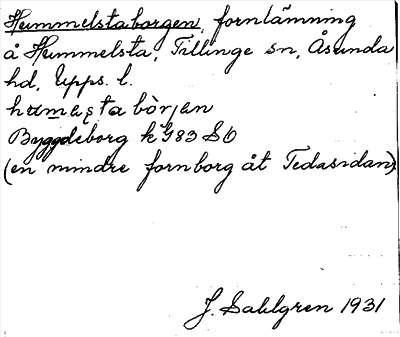 Hummelstaborgen, fornlämning
å Hummelsta, Tillinge sn, Åsunda
hd, Upps. l.
humesta bòrjen
Byggdeborg k 983 SO
(en mindre fornborg åt Tedasidan)
J. Sahlgren 1931